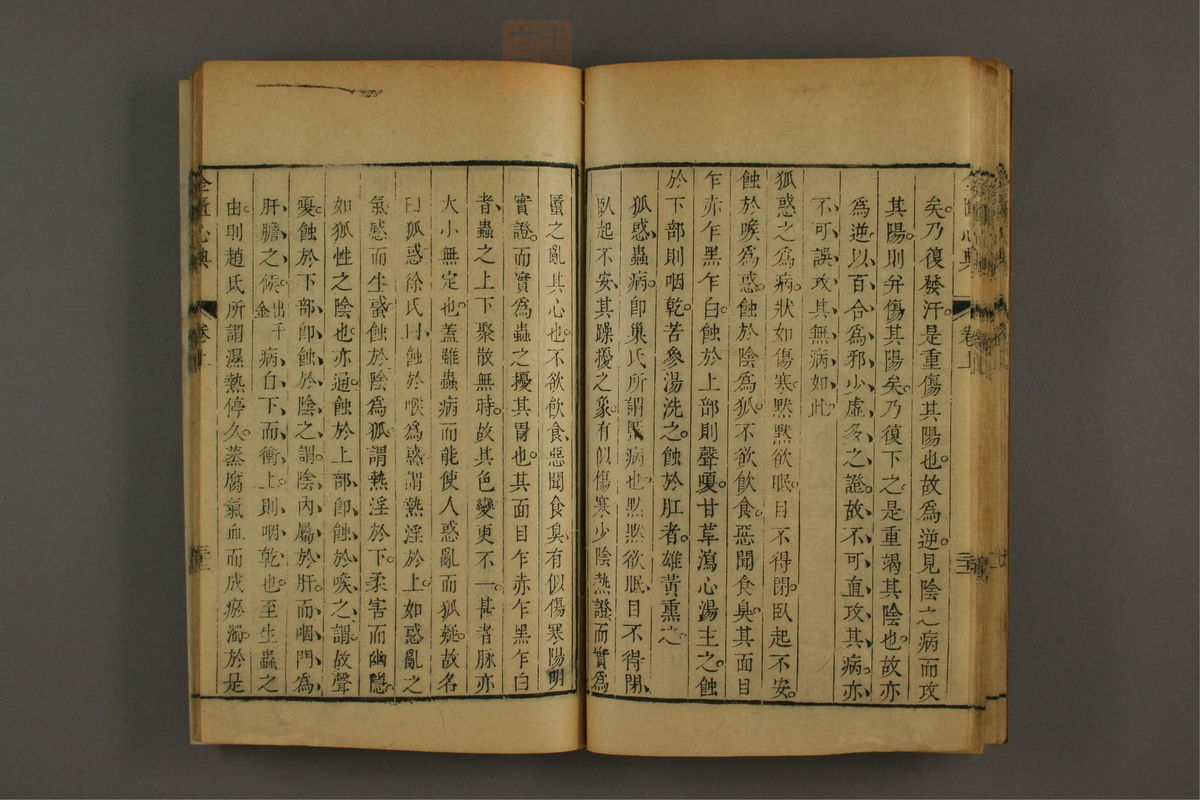 矣。乃復發汗。是重傷其陽也。故爲逆。見陰之病而攻
其陽。則幷傷其陽矣。乃復下之。是重竭其陰也。故亦
爲逆。以百合爲邪少虛多之證。故不可直攻其病。亦
不可誤攻其無病如此。
狐惑之爲病。狀如傷寒。默默欲眠。目不得閉。臥起不安。
蝕於喉爲惑。蝕於陰爲狐。不欲飮食。惡聞食臭。其面目
乍赤乍黑乍白。蝕於上部則聲嗄。甘草瀉心湯主之。蝕
於下部則咽乾。苦參湯洗之。蝕於肛者。雄黃熏之。
狐惑。蟲病。卽巢氏所謂病也。默默欲眠。目不得閉。
臥起不安。其躁擾之象。有似傷寒少陰熱證。而實爲
䘌之亂其心也。不欲飮食。惡聞食臭。有似傷寒陽明
實證。而實爲蟲之擾其胃也。其面目乍赤乍黑乍白
者。蟲之上下聚散無時。故其色變更不一。甚者脉亦
大小無定也。蓋雖蟲病。而能使人惑亂而狐疑。故名
曰狐惑。徐氏曰。蝕於喉爲惑。謂熱淫於上。如惑亂之
氣感而生蜮。蝕於陰爲狐。謂熱淫於下。柔害而幽隱。
如狐性之陰也。亦通。蝕於上部。卽蝕於喉之謂。故聲
嗄。蝕於下部。卽蝕於陰之謂。陰內屬於肝。而咽門爲
肝膽之候。出千金病自下而衝上。則咽乾也。至生蟲之
由。則趙氏所謂濕熱停久。蒸腐氣血而成瘀濁。於是
金匱心典 卷上